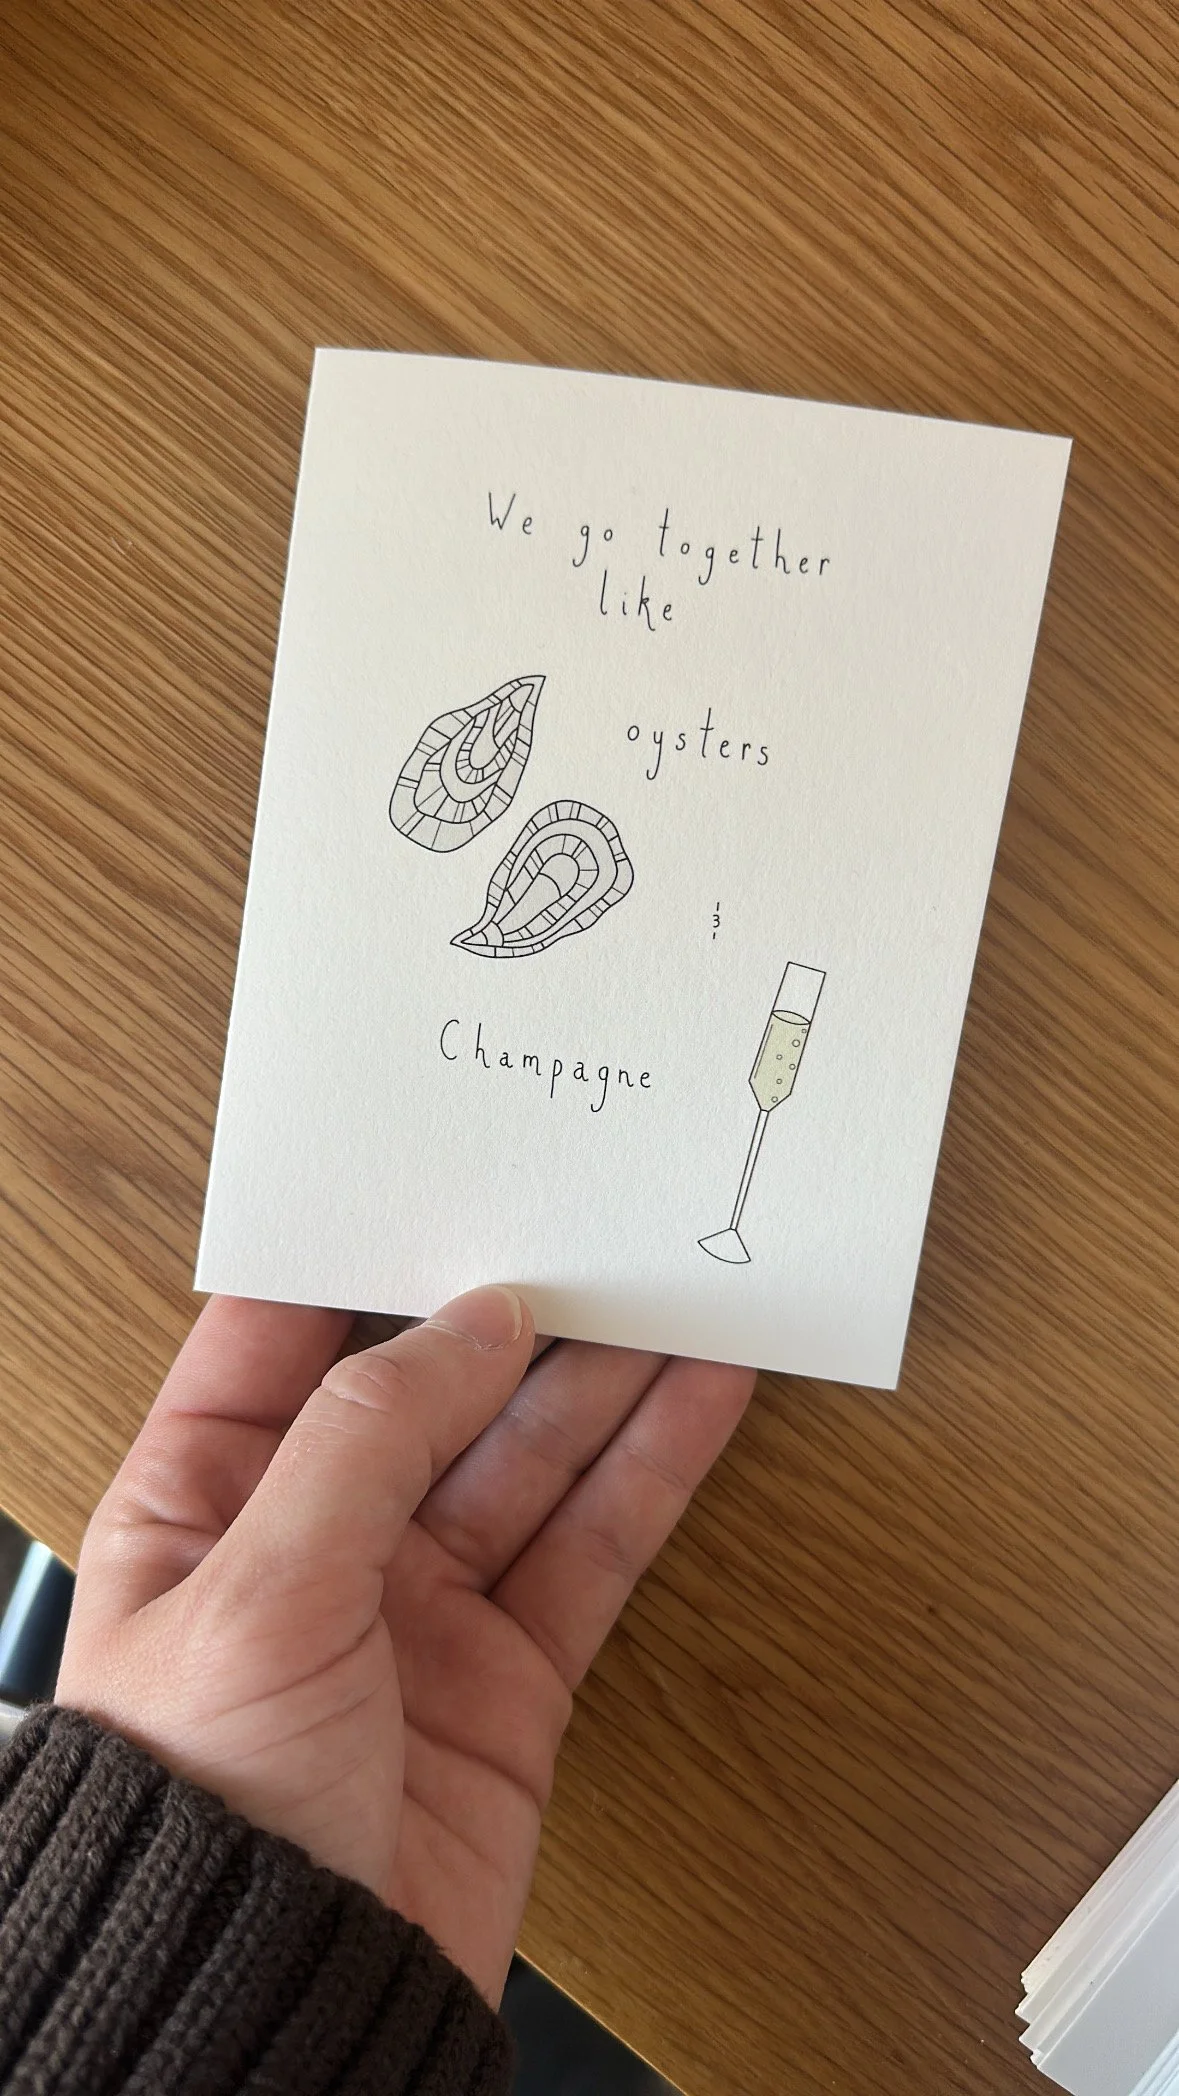 We go together
like
oysters
&
Champagne